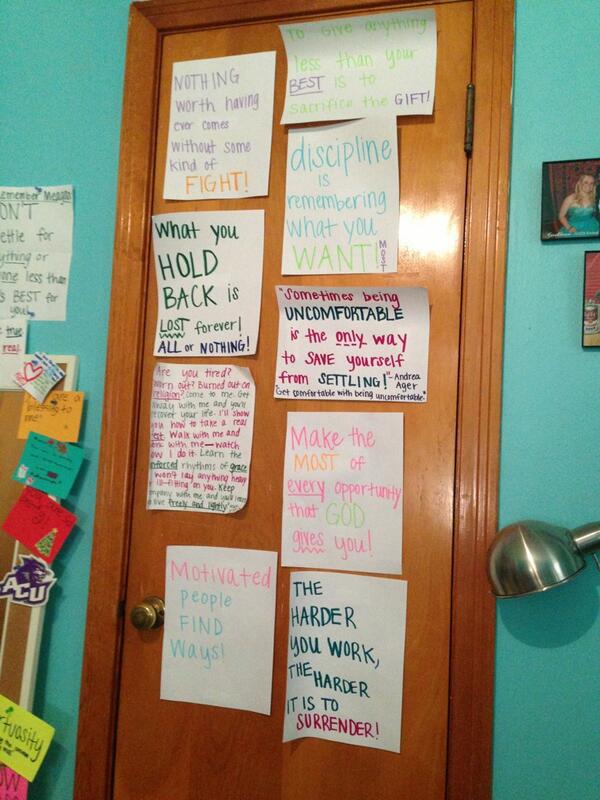 To Give anything
less than your
BEST is to
sacrifice the GIFT!
NOTHING
worth having
ever comes
without some
kind of
FIGHT!
discipline
is
remembering
what you
WANT! MOST
What you
HOLD
BACK is
LOST forever!
ALL or NOTHING!
"Sometimes being
UNCOMFORTABLE
is the only way
to SAVE yourself
from SETTLING!" - Andrea
Ager
"Get comfortable with being uncomfortable"
Are you tired?
Worn out? Burned out on
religion? Come to me. Get
away with me and you'll
recover your life. I'll show
you how to take a real
rest. Walk with me and
work with me - watch
how I do it. Learn the
unforced rhythms of grace
I won't lay anything heavy
or ill-fitting on you. Keep
company with me and you'll learn
to live freely and lightly"
Make the
MOST of
every opportunity
that GOD
gives you!
Motivated
people
FIND
Ways!
THE
HARDER
YOU WORK,
THE HARDER
IT IS TO
SURRENDER!
Remember Meagan
DON'T
settle for
anything or
one less than
BEST for
true
real
ACU